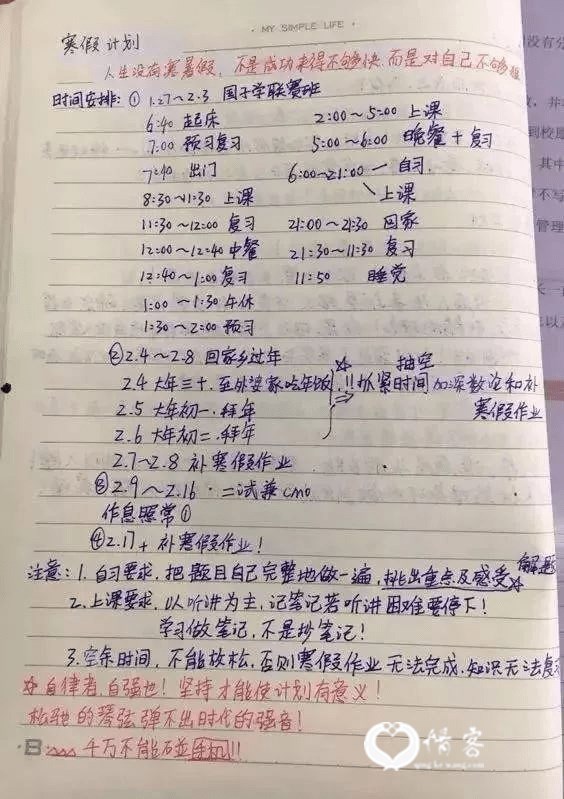 · MY SIMPLE LIFE ·
寒假计划
人生没有寒暑假，不是成功来得不够快 而是对自己不够狠
时间安排：① 1.27～2.3 国子学联赛班
6:40 起床 2:00～5:00 上课
7:00 预习复习 5:00～6:00 晚餐+复习
7:40 出门 6:00～21:00 — 自习
8:30～11:30 上课 上课
11:30～12:00 复习 21:00～21:30 回家
12:00～12:40 中餐 21:30～11:30 复习
12:40～1:00 复习 11:50 睡觉
1:00～1:30 午休
1:30～2:00 预习
② 2.4～2.8 回家乡过年
2.4 大年三十.至外婆家吃年饭 ☆!!抓紧时间 抽空 加深数论和补
2.5 大年初一.拜年 寒假作业
2.6 大年初二.拜年
2.7～2.8 补寒假作业
③ 2.9～2.16 · 二试兼cmo
作息照常①
④ 2.17+ 补寒假作业！
注意：1. 自习要求，把题目自己完整地做一遍，挑出重点及感受☆解题
2. 上课要求，以听讲为主，记笔记若听讲困难要停下！
学习做笔记，不是抄笔记！
3. 空余时间，不能放松，否则寒假作业无法完成，知识无法复习
☆ 自律者，自强也！坚持才能使计划有意义！
松弛的琴弦弹不出时代的强音！
千万不能碰手机!!!
没有
并
到校
其中
不写
管理
惜客